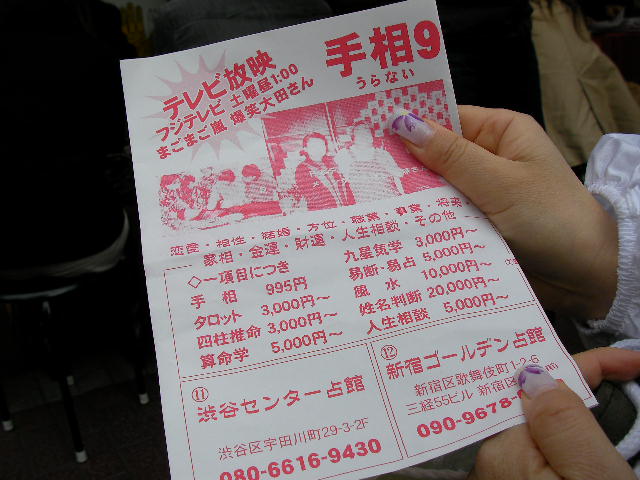 手相9
うらない
テレビ放映
フジテレビ 土曜昼1:00
まごまご嵐 爆笑大田さん
恋愛・相性・結婚・方位・職業・事業・将来
家相・金運・財運・人生相談・その他
◇一項目につき
手 相 995円
タロット 3,000円～
四柱推命 3,000円～
算命学 5,000円～
九星気学 3,000円～
易断・易占 5,000円～
風 水 10,000円～
姓名判断 20,000円～
人生相談 5,000円～
⑪
渋谷センター占館
渋谷区宇田川町29-3-2F
080-6616-9430
⑫
新宿ゴールデン占館
新宿区歌舞伎町1-2-6
三経55ビル 新宿区
090-9678-